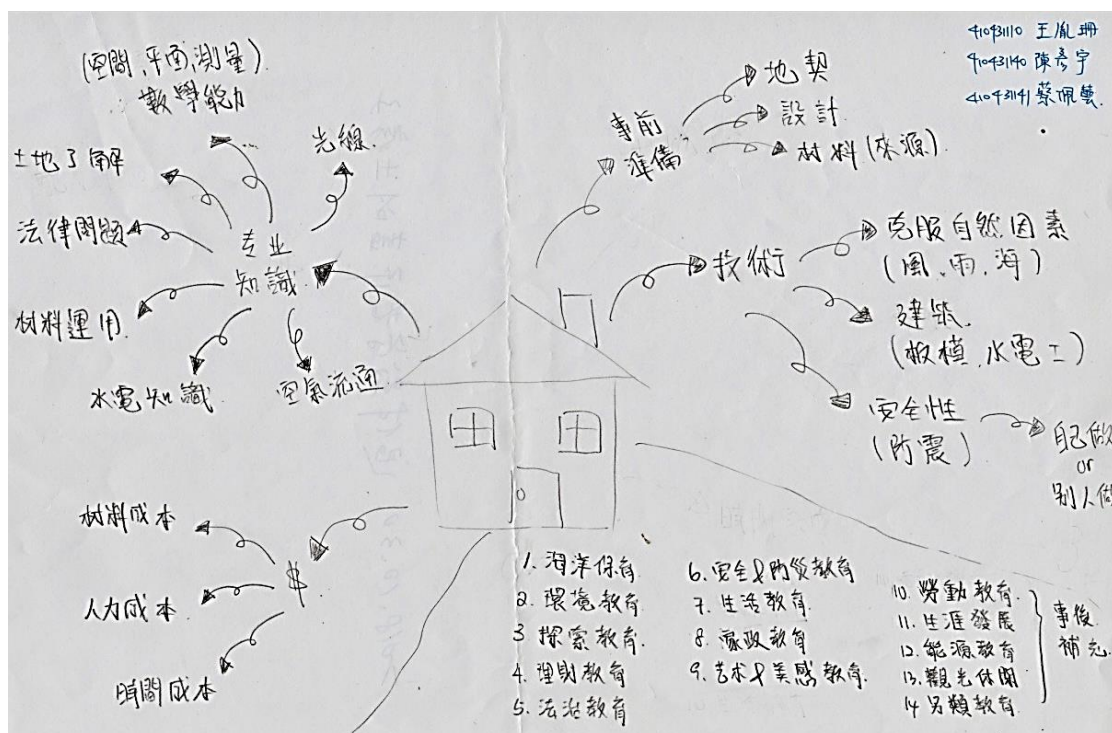 41043110 王胤珊
41043140 陳彥宇
41043141 蔡佩蓁
(空間、平面、測量)
數學能力
光線
土地了解
法律問題
专业
知識
材料運用
水電知識
空氣流通
事前
準備
地契
設計
材料(來源)
技術
克服自然因素
(風、雨、海)
建築
(板模、水電工)
安全性
(防震)
自己做
or
別人做
$
材料成本
人力成本
時間成本
1. 海洋保育
2. 環境教育
3. 探索教育
4. 理財教育
5. 法治教育
6. 安全&防災教育
7. 生活教育
8. 家政教育
9. 艺术&美感教育
10. 勞動教育
11. 生涯發展
12. 能源教育
13. 觀光休閒
14 另類教育
事後
補充